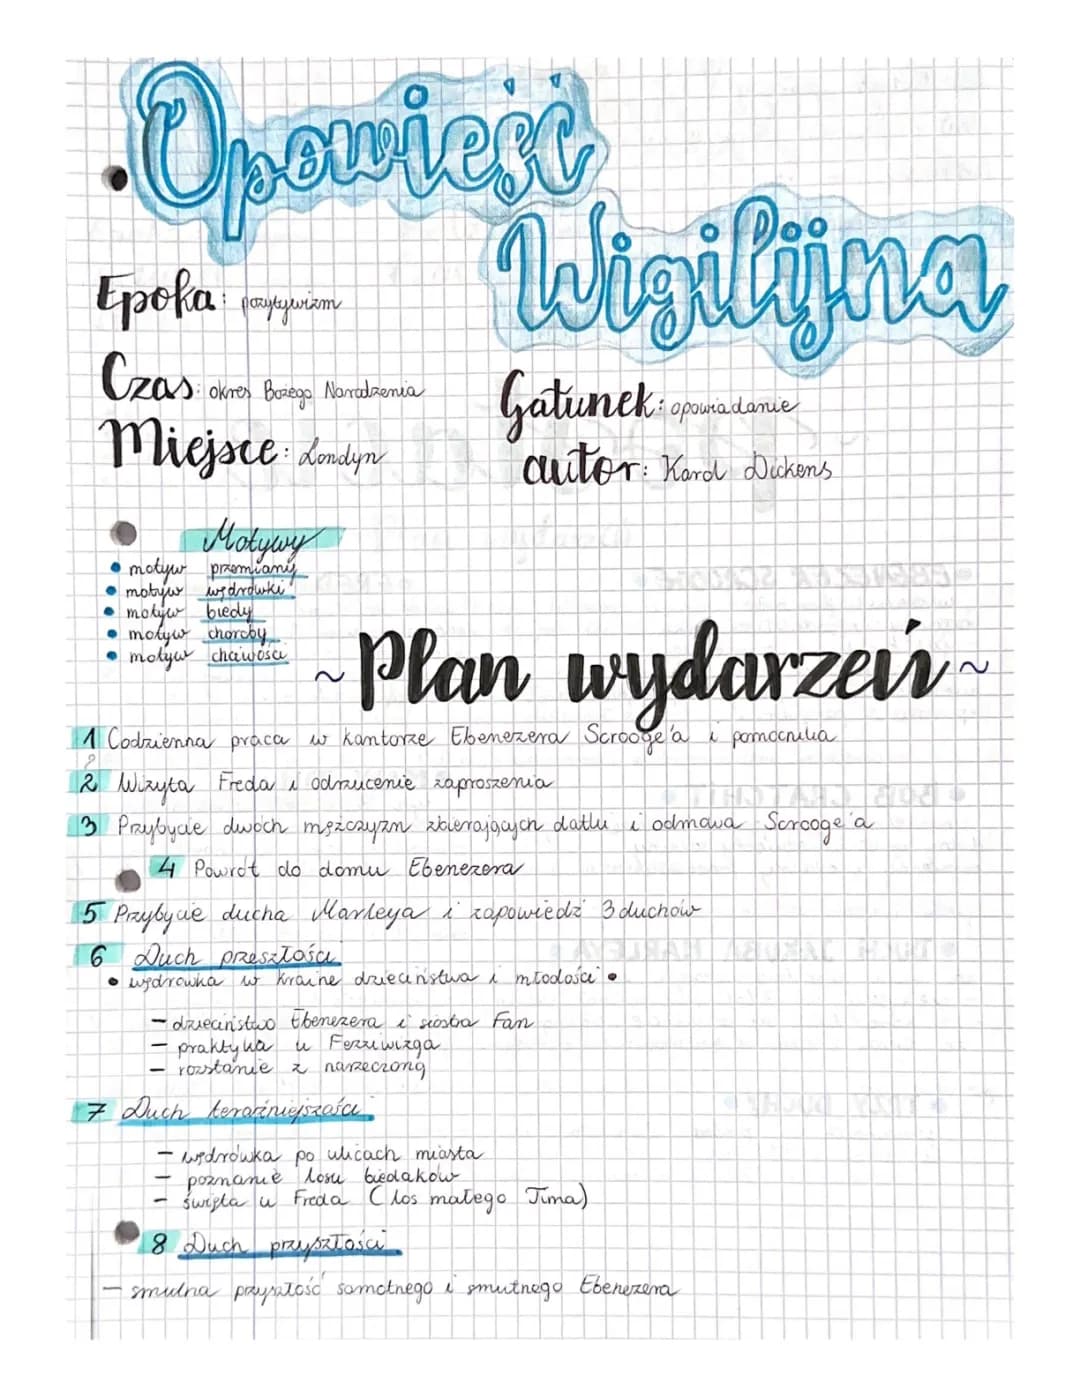 Opowieść
Wigilijna
Epoka: pozytywizm
Czas: okres Bożego Narodzenia
Miejsce: Londyn
Gatunek: opowiadanie
autor: Karol Dickens
Motywy
• motyw przemiany
• motyw wędrówki
• motyw biedy
• motyw choroby
• motyw chciwości
~ Plan wydarzeń ~
1 Codzienna praca w kantorze Ebenezera Scrooge'a i pomocnika
2 Wizyta Freda i odrzucenie zaproszenia
3 Przybycie dwóch mężczyzn zbierających datki i odmowa Scrooge'a
4 Powrót do domu Ebenezera
5 Przybycie ducha Marleya i zapowiedź 3 duchów
6 Duch przeszłości
• wędrówka w krainę dzieciństwa i młodości •
– dzieciństwo Ebenezera i siostra Fan
– praktyka u Fezziwizga
– rozstanie z narzeczoną
7 Duch teraźniejszości
– wędrówka po ulicach miasta
– poznanie losu biedaków
– święta u Freda (los małego Tima)
8 Duch przyszłości
– smutna przyszłość samotnego i smutnego Ebenezera